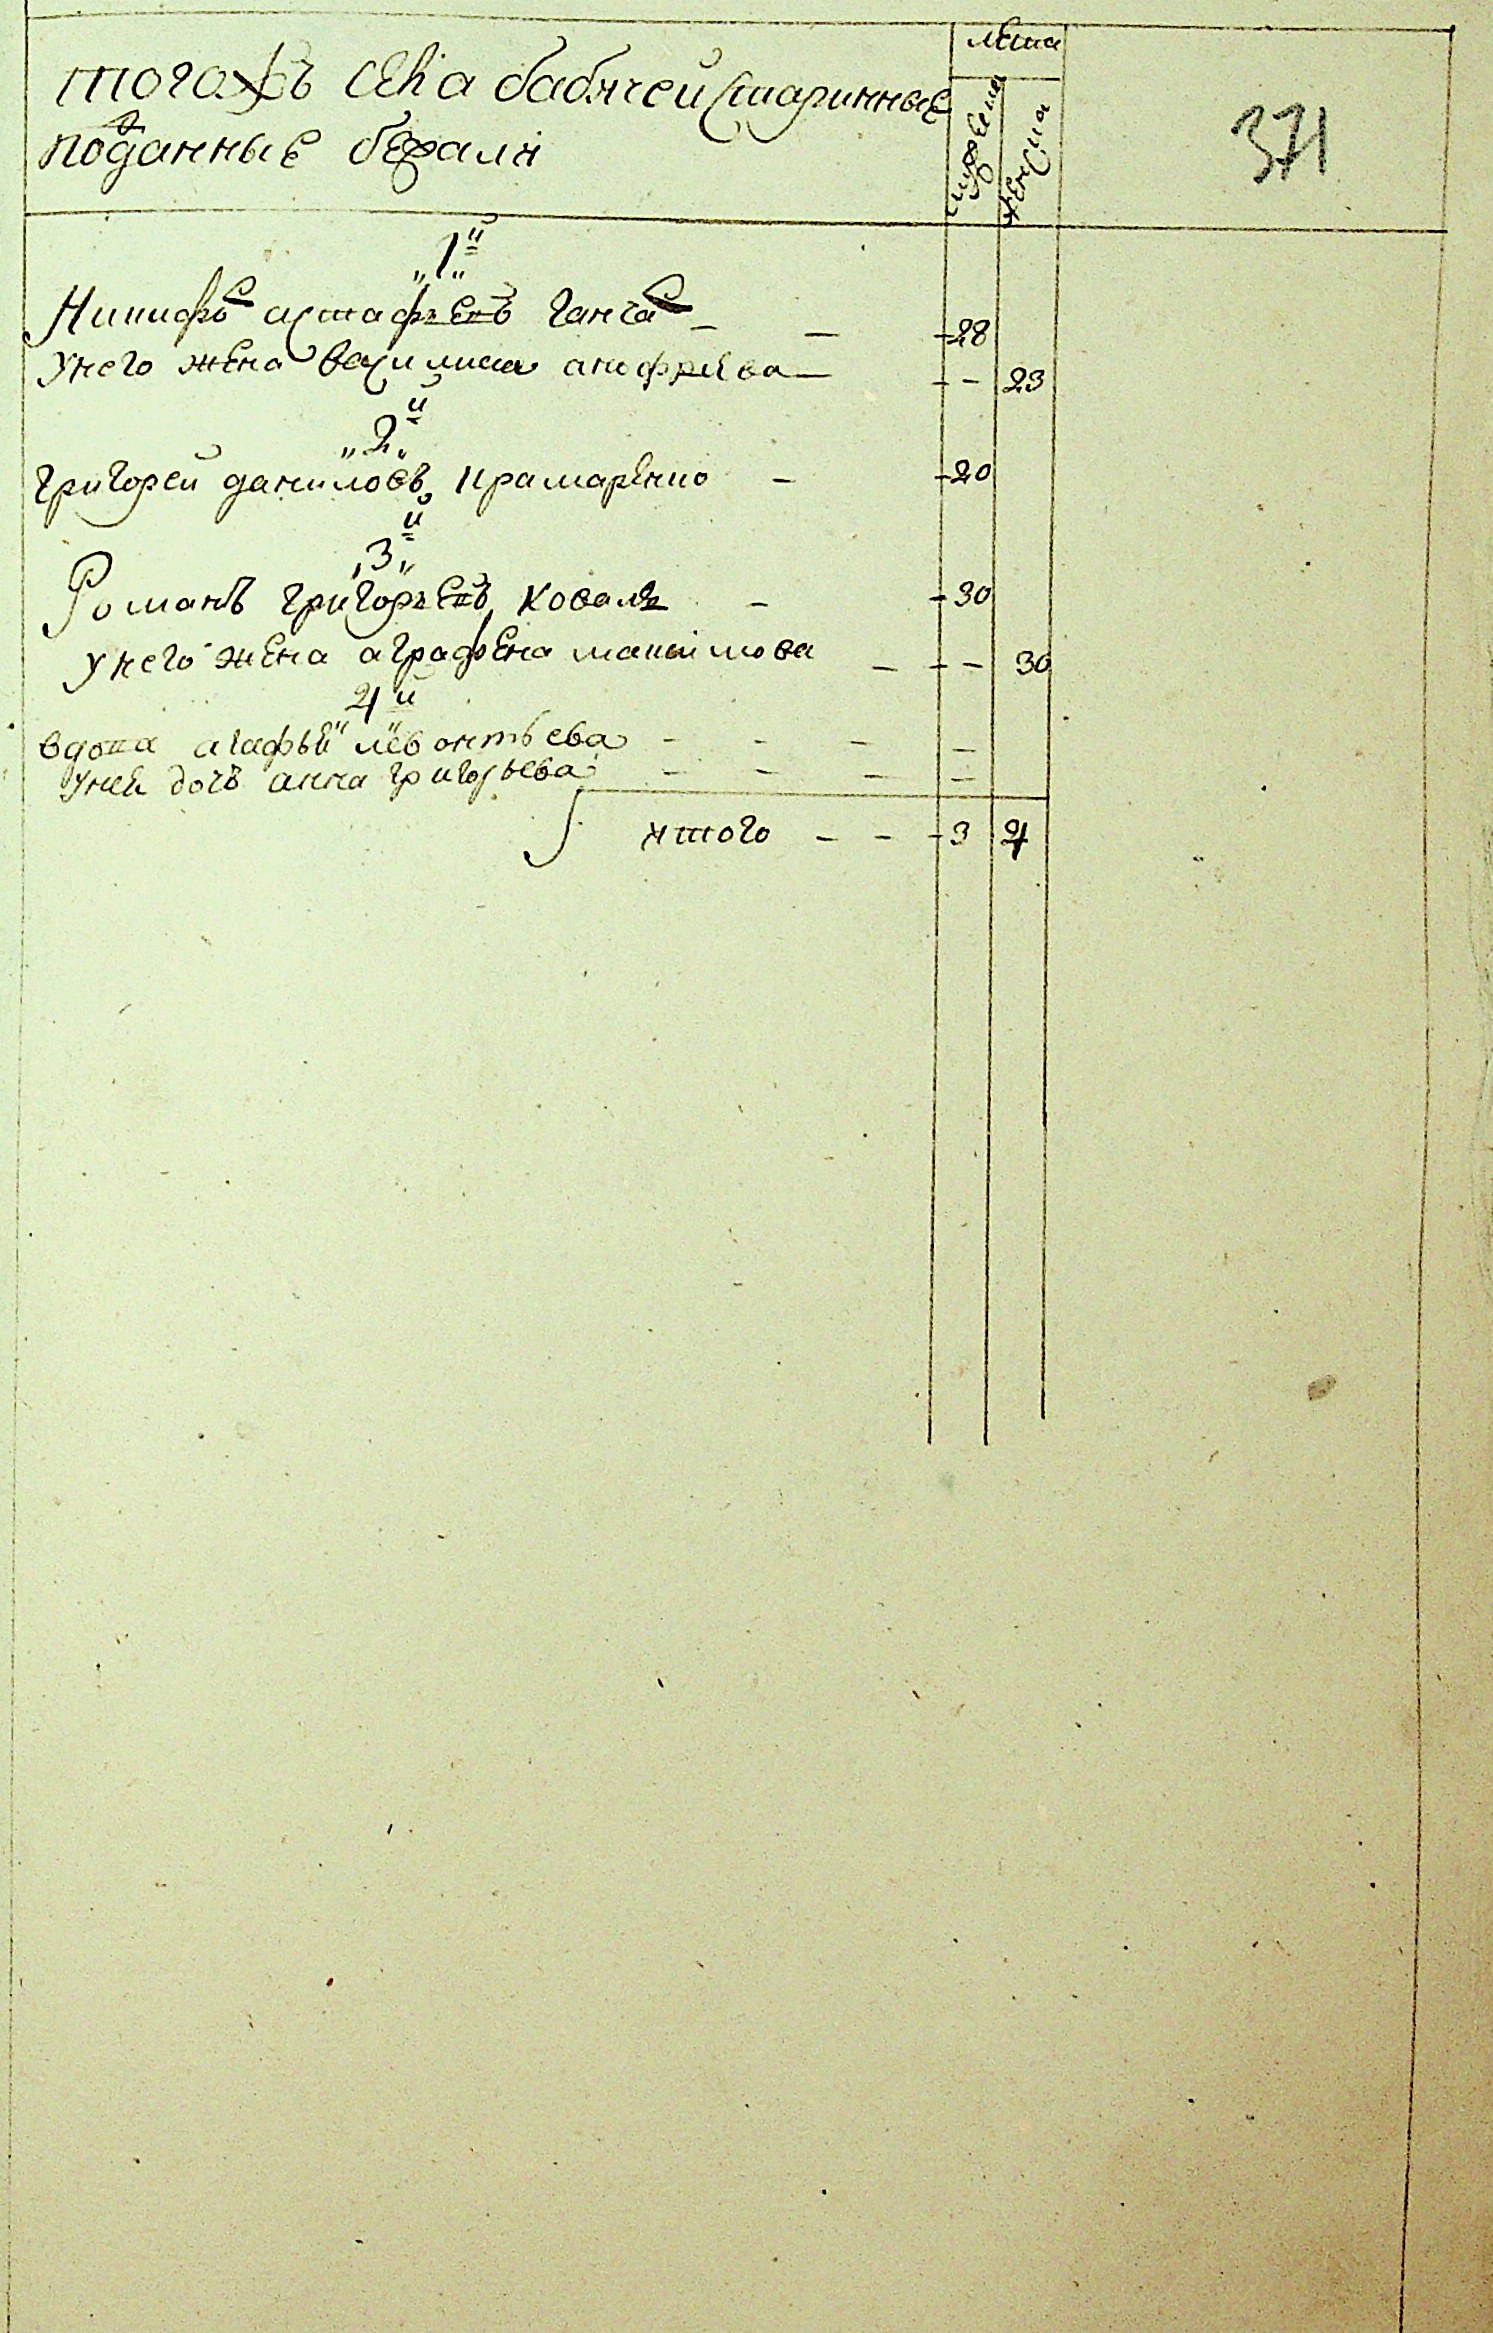 тогожъ села бабячей старинные
подданные бежали
лѣта
мужеска
женска
371
„1„й
Никифоръ астафьевъ ганча
унего жена василиса анофриева
28
23
„2„й
григорей даниловъ крамаренко
20
„3„й
Романъ григорьевъ коваль
30
унего жена аграфена макъсимова
30
4й
вдова агафья левонтьева
унеи дочь анна григорьева
итого
3
4